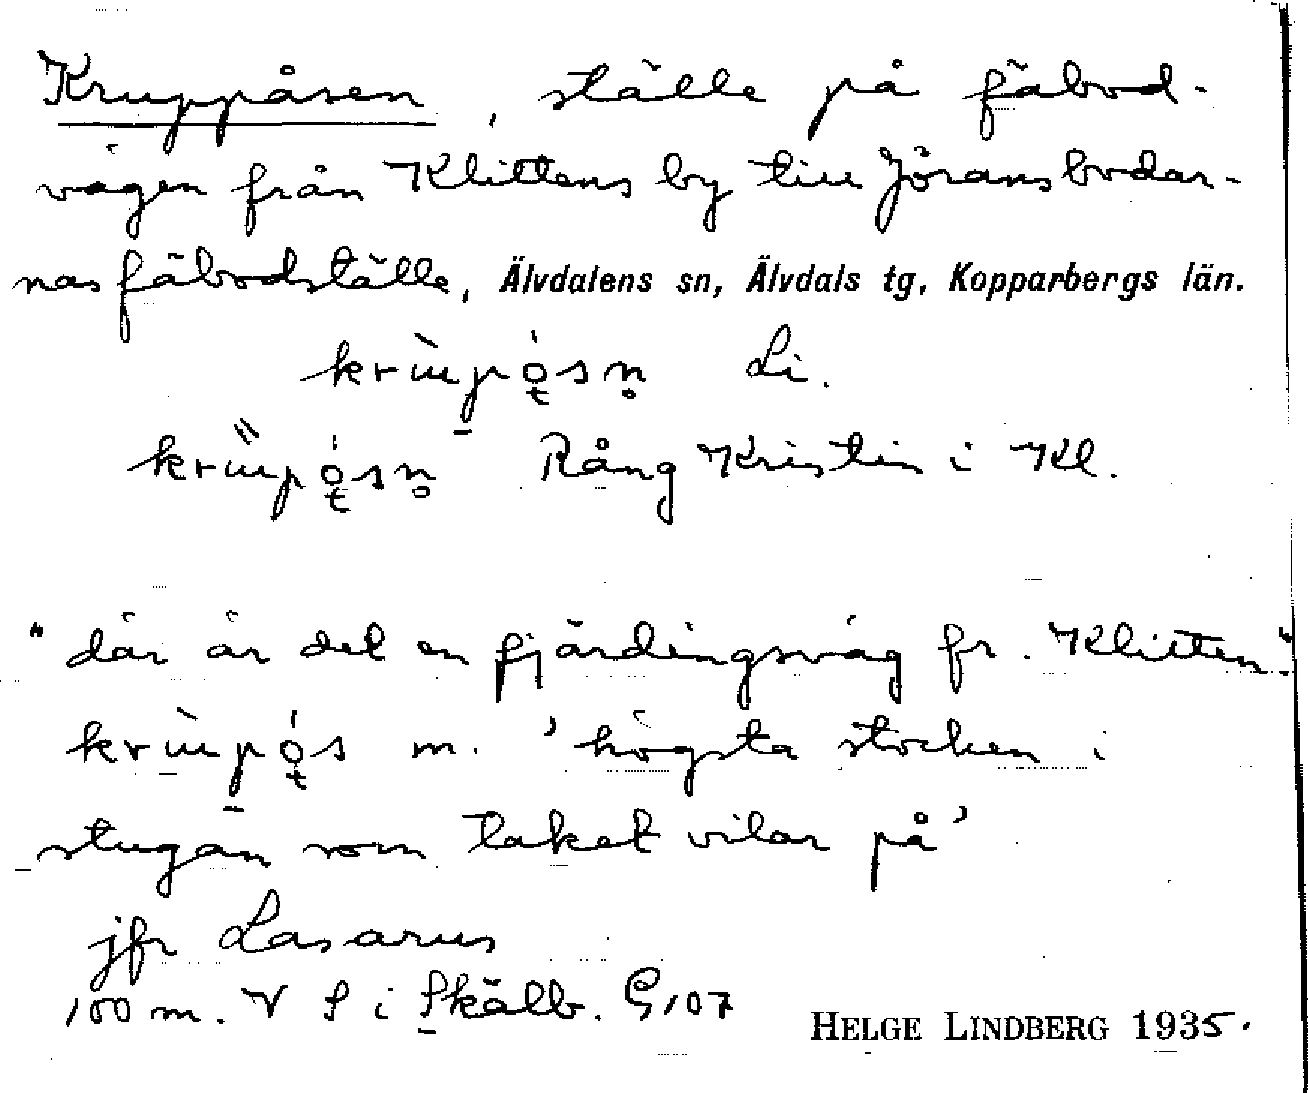 Kruppåsen, ställe på fäbod-
vägen från Klittens by till Jöransbodar-
nas fäbodställe, Älvdalens sn, Älvdals tg, Kopparbergs län.
Li.
Rång Kristin i Kl.
"där är det en fjärdingsväg fr. Klitten"
m. 'högsta stocken i
stugan som taket vilar på'
jfr Lasarus
100 m. V S i Skälb. G107
HELGE LINDBERG 1935.